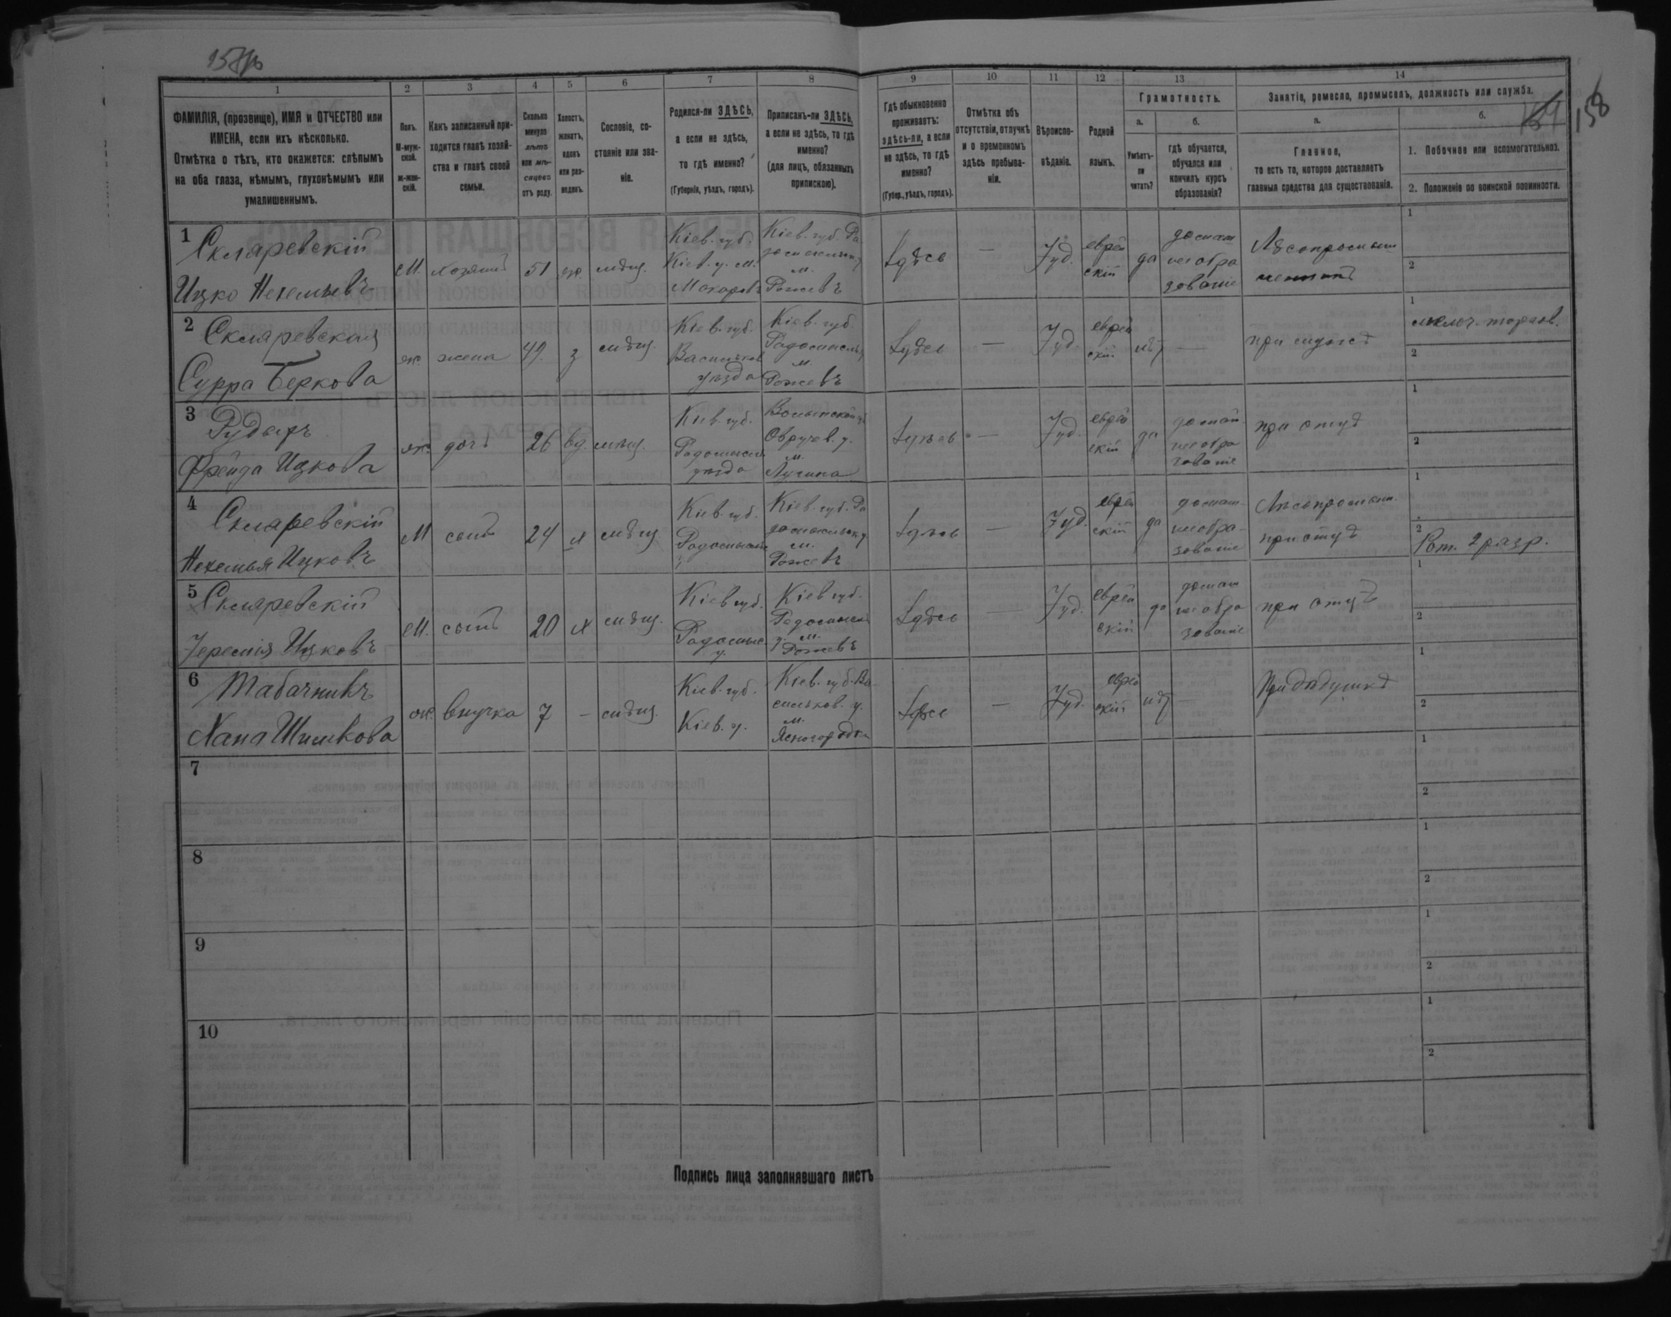 158
1 2 3 4 5 6 7 8 9 10 11 12 13 14
ФАМИЛІЯ, (прозвище), ИМЯ и ОТЧЕСТВО или
ИМЕНА, если ихъ нѣсколько.
Отмѣтка о тѣхъ, кто окажется: слѣпымъ
на оба глаза, нѣмымъ, глухонѣмымъ или
умалишеннымъ.
Полъ.
М-муж-
ской.
ж-жен-
скій.
Какъ записанный при-
ходится главѣ хозяй-
ства и главѣ своей
семьи.
Сколько
минуло
лѣтъ
или мѣ-
сяцевъ
отъ роду.
Холостъ,
женатъ,
вдовъ
или раз-
веденъ.
Сословіе, со-
стояніе или зва-
ніе.
Родился-ли ЗДѢСЬ,
а если не здѣсь,
то гдѣ именно?
(Губернія, уѣздъ, городъ).
Приписанъ-ли ЗДѢСЬ,
а если не здѣсь, то гдѣ
именно?
(для лицъ, обязанныхъ
припискою).
Гдѣ обыкновенно
проживаетъ:
здѣсь-ли, а если
не здѣсь, то гдѣ
именно?
(Губер., уѣздъ, городъ).
Отмѣтка объ
отсутствіи, отлучкѣ
и о временномъ
здѣсь пребыва-
ніи.
Вѣроиспо-
вѣданіе.
Родной
языкъ.
Грамотность.
а.
Умѣетъ-
ли
читать?
б.
гдѣ обучается,
обучался или
кончилъ курсъ
образованія?
Занятіе, ремесло, промыселъ, должность или служба.
а.
Главное,
то есть то, которое доставляетъ
главныя средства для существованія.
б.
1. Побочное или вспомогательное.
2. Положеніе по воинской повинности.
158
1 Скляревскій
Ицко Нехемьевъ
М. хозяинъ 51 ж. мѣщ.
Кіев. губ.
Кіев. у. м.
Макаровъ
Кіев. губ. Ра
домысльск у
м.
Рожевъ
Здѣсь — Іуд. еврей
скій да домаш
нее обра
зованіе
1
2
2 Скляревская
Сурра Беркова
ж. жена 49 з мѣщ.
Кіев. губ.
Васильков
уѣзда
Кіев. губ.
Радомысльск
м
Рожевъ
Здѣсь — Іуд. еврей
скій нѣт —
1 мелоч. торгов.
2
3 Рудыръ
Фрейда Ицкова
ж. дочь 26 вд. мѣщ.
Кіев. губ.
Радомысльск
уѣзда
Волынской г
Овручев. у.
м
Лугина
Здѣсь — Іуд. еврей
скій да домаш
нее обра
зованіе
при отцѣ
1
2
4 Скляревскій
Нехемья Ицковъ
М сынъ 24 х мѣщ
Кіев губ.
Радомысльск
у
Кіев. губ. Ра
домысльск у
м.
Рожевъ
Здѣсь — Іуд. еврей
скій да домаш.
нее обра-
зованіе
при отцѣ
1
2 Рат. 2 разр.
5 Скляревскій
Іеремія Ицковъ
М. сынъ 20 х мѣщ.
Кіев губ.
Радомысл
у.
Кіев губ.
Радомысльск
у. м.
Рожевъ
Здѣсь — Іуд. еврей
скій да домаш
нее обра
зованіе
при отцѣ
1
2
6 Табачникъ
Хана Шимкова
ж. внучка 7 — мѣщ.
Кіев. губ.
Кіев. у.
Кіев. губ. Ва-
сильков. у.
м.
Ясногородка
Здѣсь — Іуд. еврей
скій нѣт —
При дѣдушкѣ
1
2
7
1
2
8
1
2
9
1
2
10
1
2
Подпись лица заполнявшаго листъ